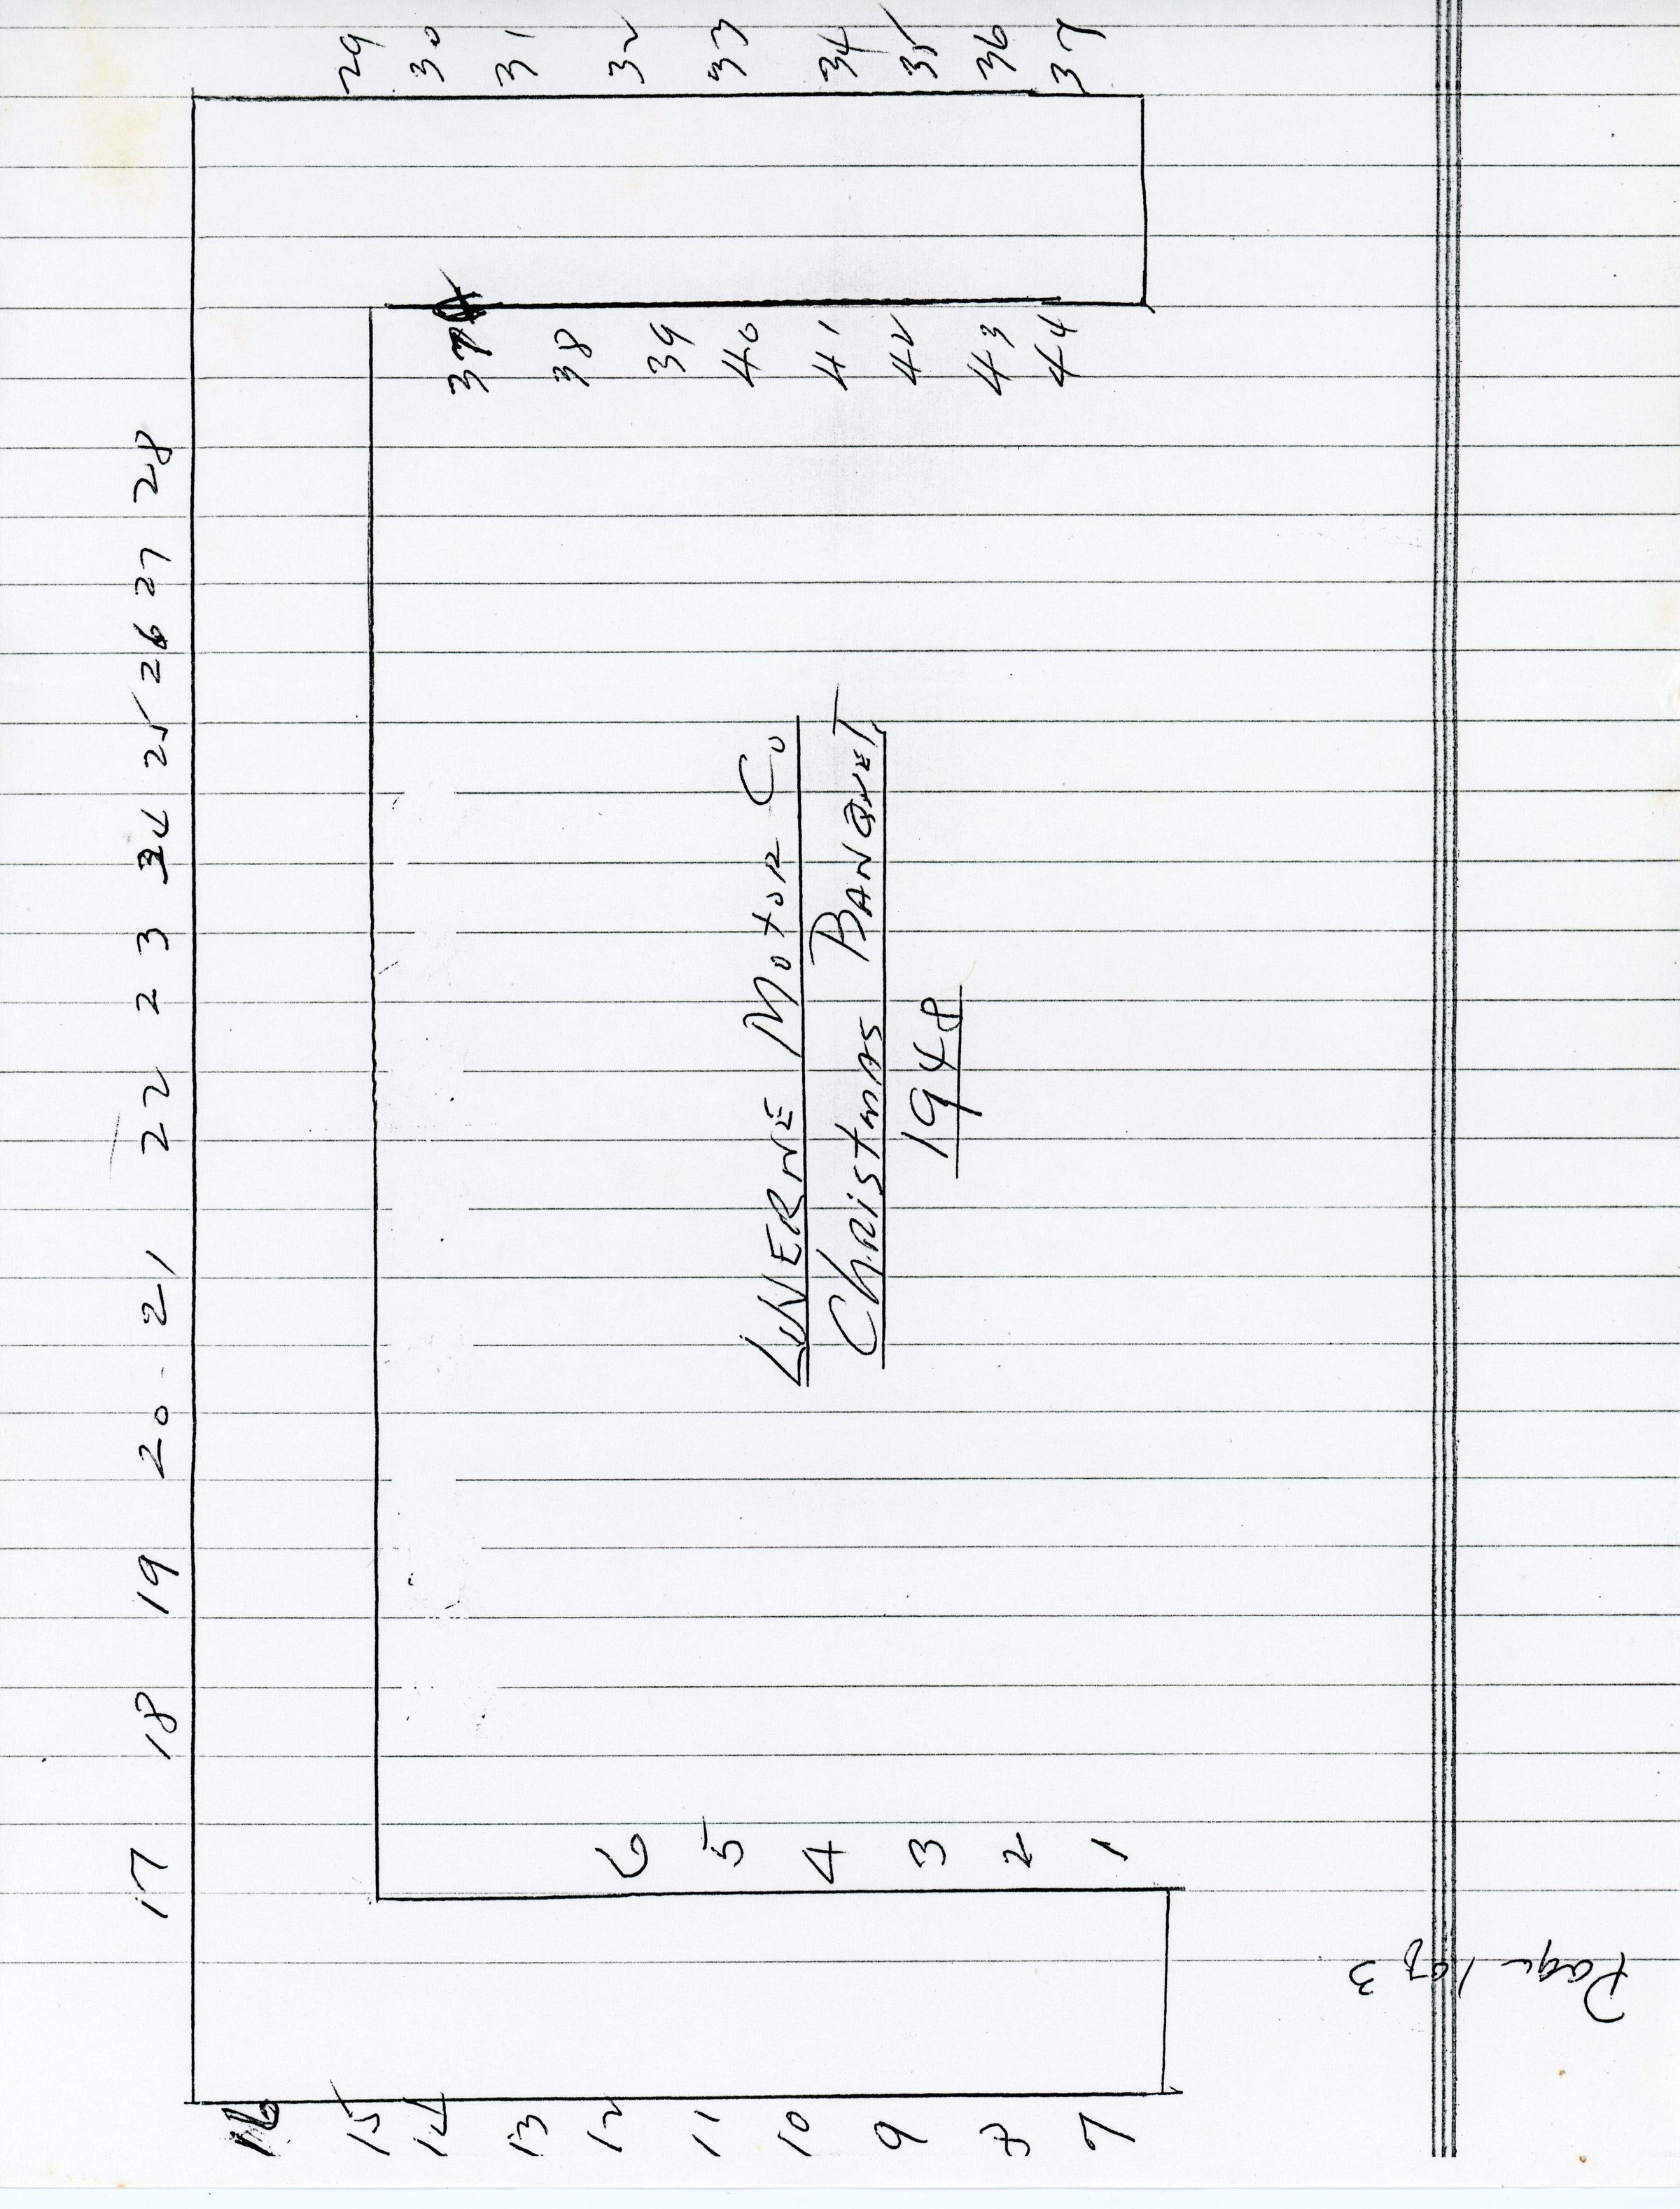 17 18 19 20 21 22 23 24 25 26 27 28
16
15
14
13
12
11
10
9
8
7
6
5
4
3
2
1
LUVERNE MOTOR Co
ChRiStmAS BANQUET
1948
37
38
39
40
41
42
43
44
29
30
31
32
33
34
35
36
37
Page 1 of 3